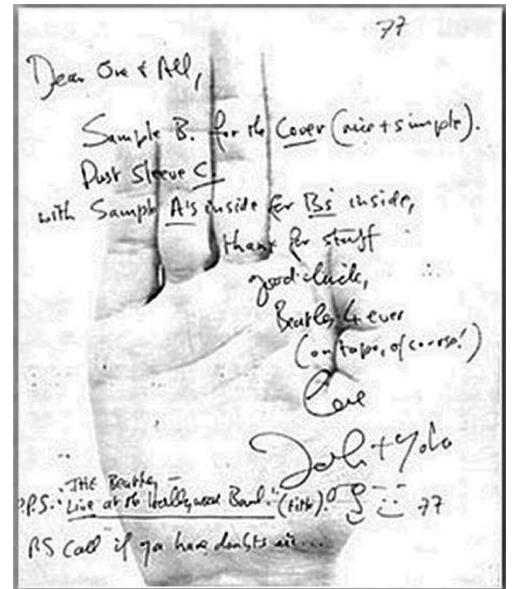 77
Dear One & All,
Sample B. for the Cover (nice + simple).
Dust Sleeve C.
with Sample A's inside for Bs' inside,
thank for stuff
good luck,
Beatles 4 ever
(on tape, of course!)
Love
John + Yoko
THE Beatles –
P.P.S. "Live at the Hollywood Bowl." (title). 77
PS Call if ya have doubts